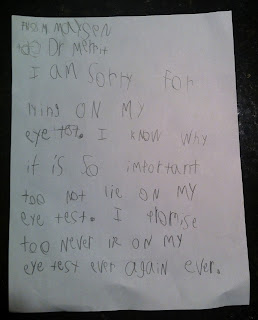 too Dr Merrit
I am sorry for
ning on my
eye test. I know why
it is so imtortant
too not lie on my
eye test. I promise
too never lie on my
eye test ever again ever.